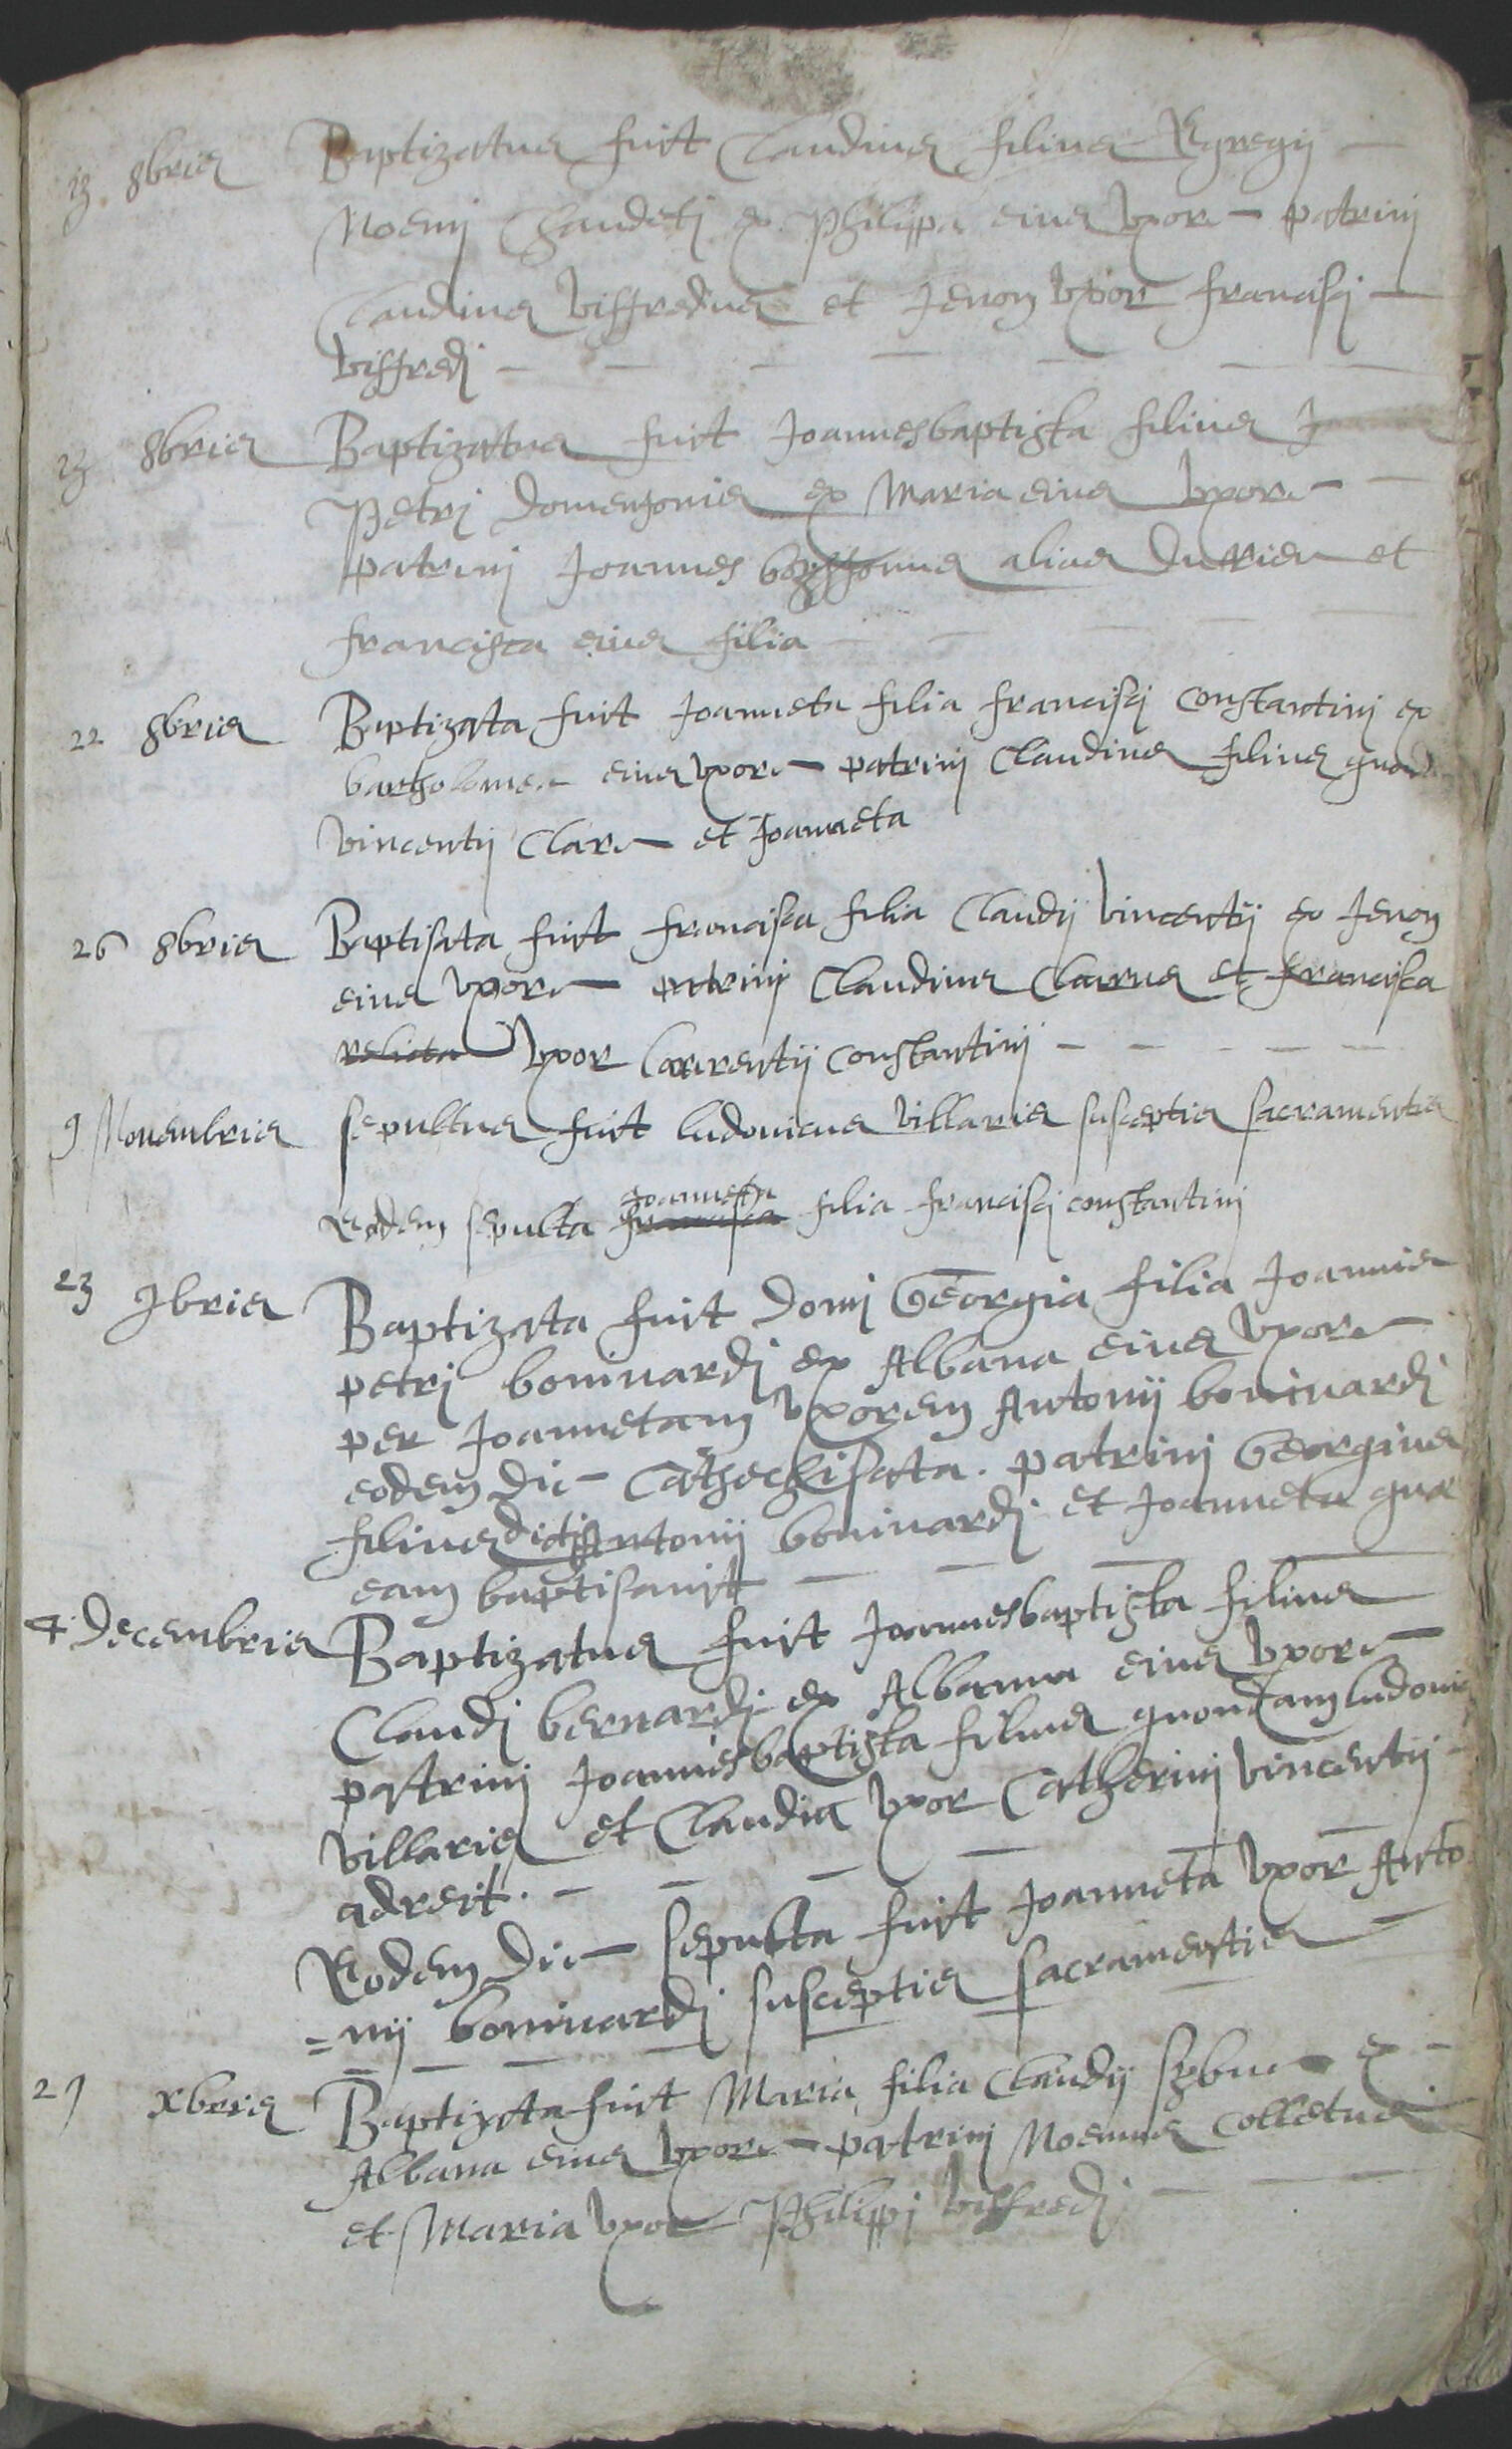 13 8bris Baptizatus fuit Claudius filius Egregij
Noemj Chaudetj ex Philippa eius uxore patrinj
Claudius viffredus et Jenon uxor francisj
viffredj
13 8bris Baptizatus fuit Joannesbaptista filius
Petrj domengonis ex Maria eius uxore
patrinj Joannes alias durrieu et
francisca eius filia
22 8bris Baptizata fuit Joanneta filia francisj constantinj ex
bartholomea eius uxore patrinj Claudius filius quond
vincentij Clare et Joanneta
26 8bris Baptisata fuit francisca filia Claudij vincentij ex Jenon
eius uxore patrinj Claudius Clarus et francisca
relicta uxor Laurentij constantinj
9 Novembris sepultus fuit ludovicus villaris susceptis sacramentis
Eodem sepulta francisca Joanneta filia francisj constantinj
23 9bris Baptizata fuit domj Georgia filia Joannis
petrj bonivardj ex Albana eius uxore
per Joannetam uxorem Antonij bonivardj
eodem die Cathechisata. patrinj Georgius
filius dictj Antonij bonivardj et Joanneta que
eam baptisavit
4 Decembris Baptizatus fuit Joannesbaptista filius
Claudj bernardj ex Albanna eius uxore
patrinj Joannesbaptista filius quondam ludovic
villaris et Claudia uxor Catherinj vincentij
adreit.
Eodem die sepulta fuit Joanneta uxor Anto
=nij bonivardj susceptis sacramentis
29 xbris Baptizata fuit Maria filia Claudij ex
Albana eius uxore patrinj Noemus Colletus
et Maria uxor Philippj viffredj